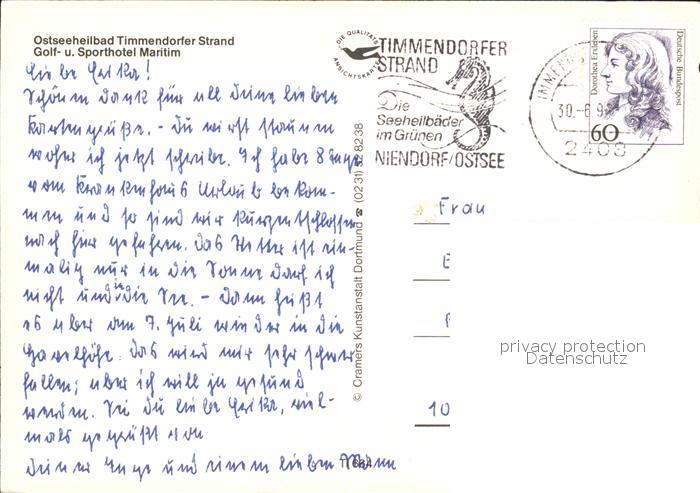 Ostseeheilbad Timmendorfer Strand
Golf- u. Sporthotel Maritim
Liebe Erika!
Schönen Dank für all deine lieben
Kartengrüße. - Du wirst staunen
woher ich jetzt schreibe. Ich habe 8 Tage
vom Krankenhaus Urlaub bekom-
men und so sind wir kurzentschlossen
nach hier gefahren. Das Wetter ist ein-
malig nur in die Sonne darf ich
nicht und in die See. - Dann heißt
es aber am 7. Juli wieder in die
Havelhöhe. Das wird mir sehr schwer
fallen; aber ich will ja gesund
werden. Sei du liebe Erika, viel-
mals gegrüßt von
deiner Inge und einem lieben Mann
DIE QUALITÄTS
ANSICHTSKARTE
© Cramers Kunstanstalt Dortmund ☎ (02 31) 52 82 38
TIMMENDORFER
STRAND
Die
Seeheilbäder
im Grünen
NIENDORF/OSTSEE
30.-6.9
2408
Dorothea Erxleben
Deutsche Bundespost
60
Frau
E
10
privacy protection
Datenschutz